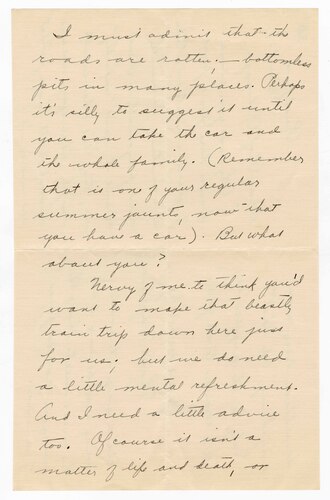 I must admit that the
roads are rotten, — bottomless
pits in many places. Perhaps
it's silly to suggest it until
you can take the car and
the whole family. (Remember
that is one of your regular
summer jaunts, now that
you have a car). But what
about you?
Nervy of me to think you'd
want to make that beastly
train trip down here just
for us; but we do need
a little mental refreshment.
And I need a little advice
too. Of course it isn't a
matter of life and death, or